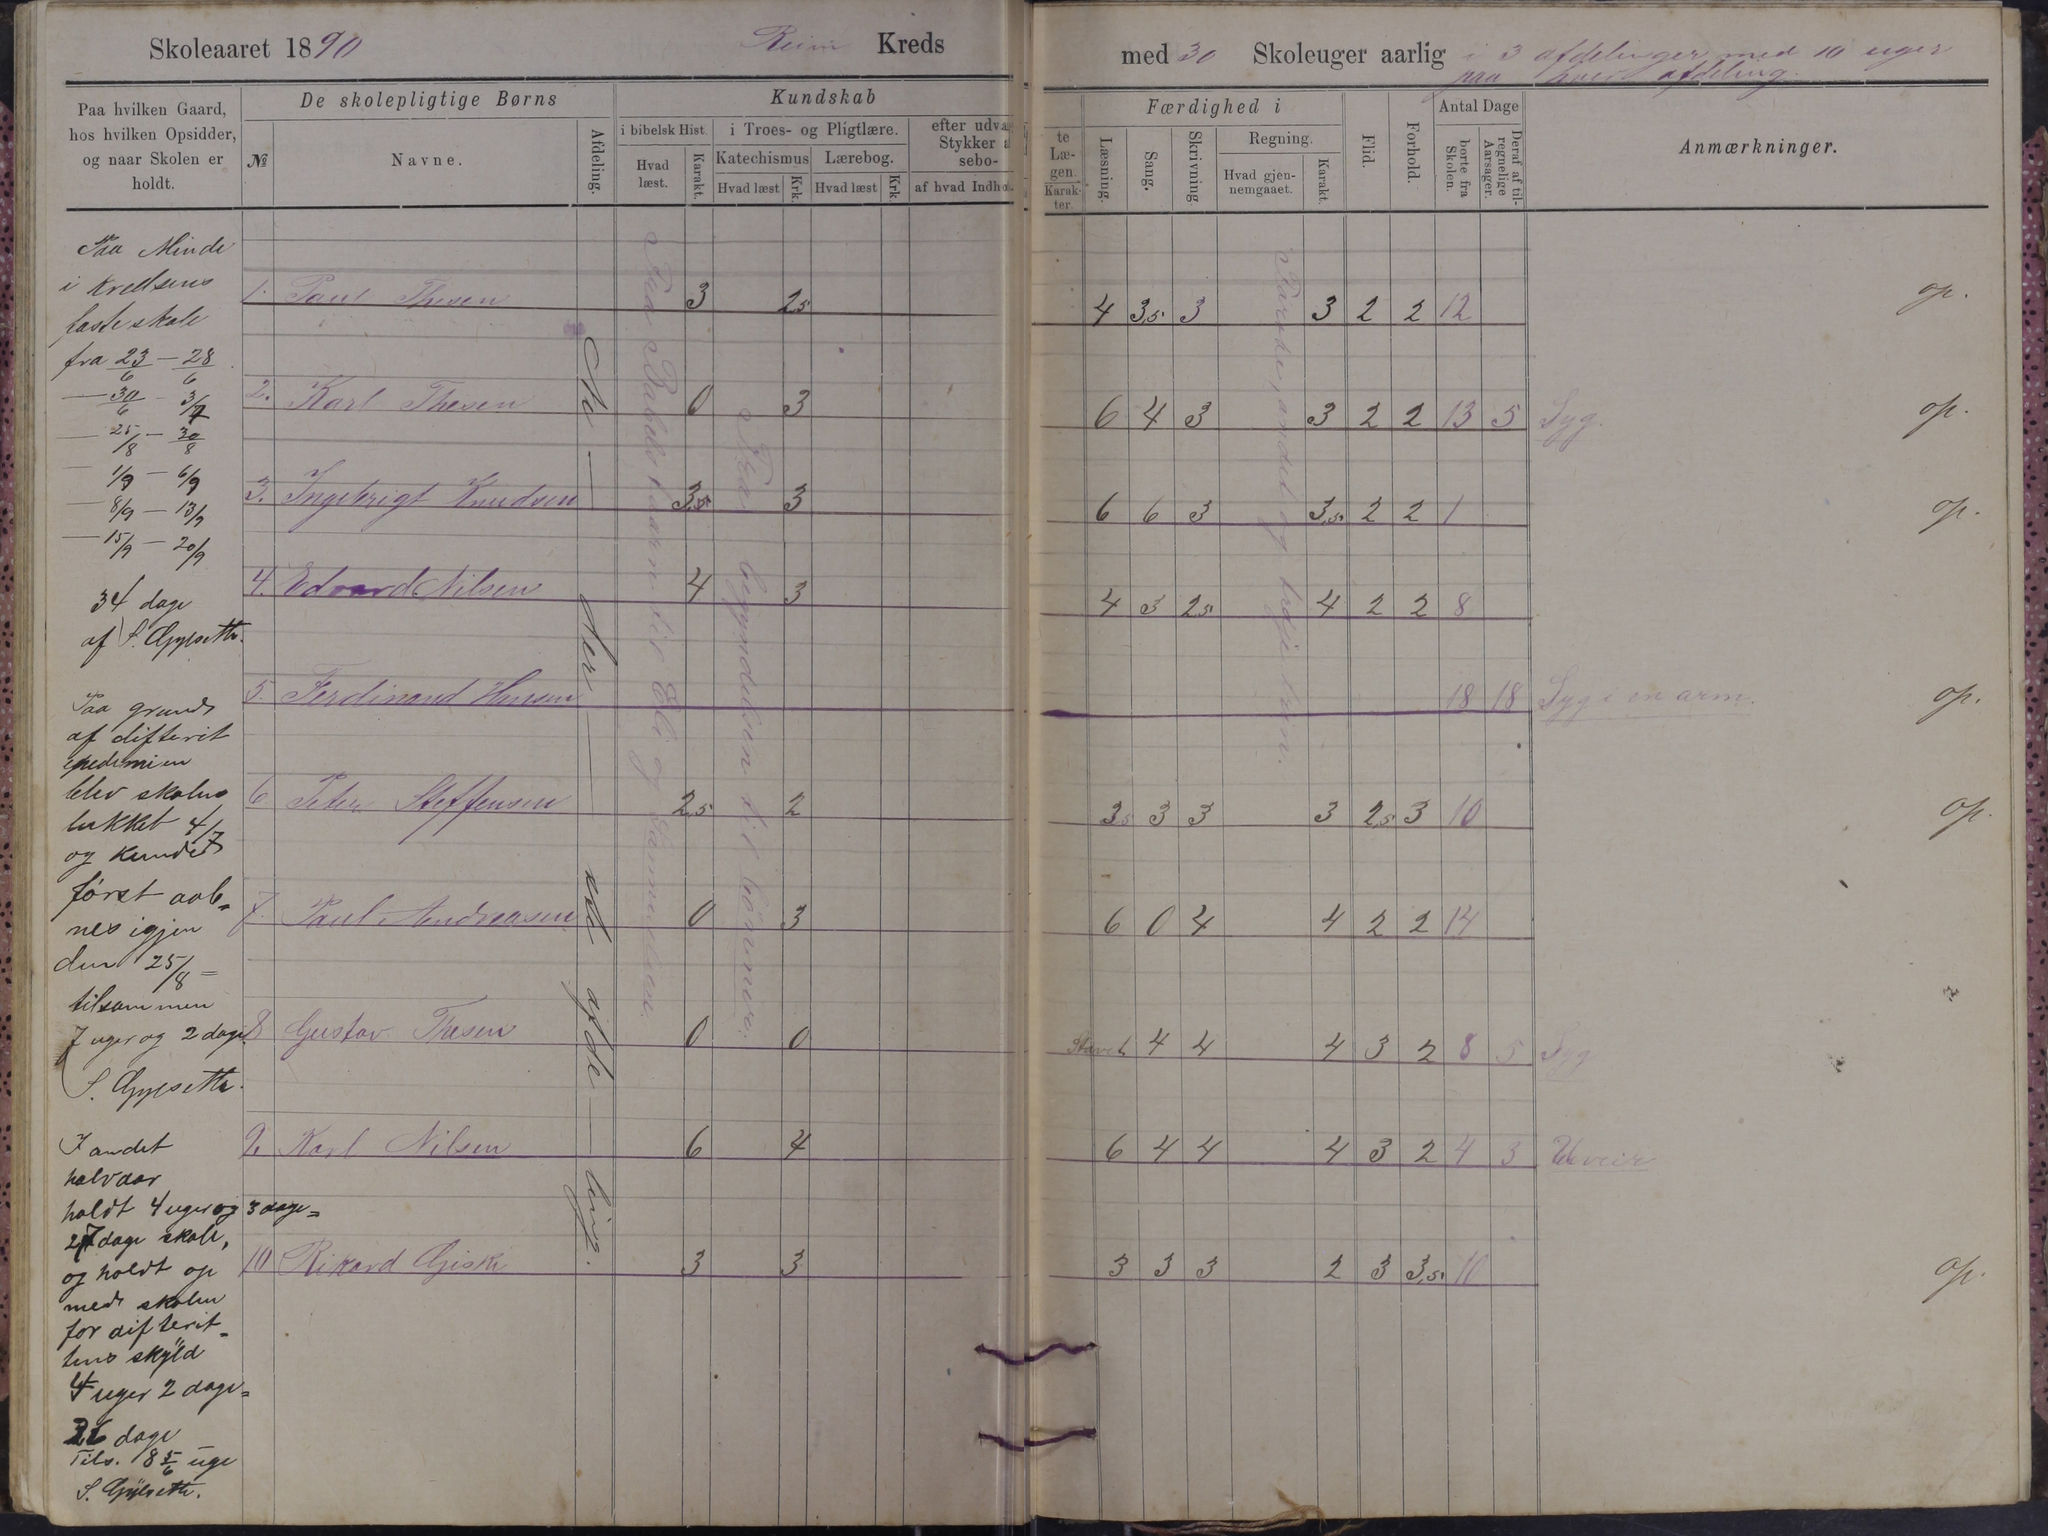 Skoleaaret 1890
Reim Kreds
med 30 Skoleuger aarlig i 3 afdelinger med 10 uger
paa hver afdeling.
Paa hvilken Gaard,
hos hvilken Opsidder,
og naar Skolen er
holdt.
De skolepligtige Børns
№
Navne.
Afdeling.
Kundskab
i bibelsk Hist.
Hvad
læst.
Karakt.
i Troes- og Pligtlære.
Katechismus
Hvad læst
Krk.
Lærebog.
Hvad læst
Krk.
efter udvalg
Stykker a
sebo-
af hvad Indhol
te
Læ-
gen.
Karak-
ter.
Færdighed i
Læsning.
Sang.
Skrivning.
Regning.
Hvad gjen-
nemgaaet.
Karakt.
Flid.
Forhold.
Antal Dage
borte fra
Skolen.
Deraf af til-
regnelige
Aarsager.
Anmærkninger.
Paa Minde
i Kredsens
faste skole
fra 23/6 — 28/6
— 30/6 - 3/7
— 25/8 — 30/8
— 1/9 — 6/9
— 8/9 — 13/9
— 15/9 — 20/9
34 dage
af S. Gylseth.
Paa grund
af difterit
epedemien
blev skolen
lukket 4/7
og kunde
først aab=
nes igjen
den 25/8 =
tilsammen
7 uger og 2 dage.
S. Gylseth.
I andet
halvaar
holdt 4 uger og 3 dage=
27 dage skole,
og holdt op
med skolen
for difterit=
tens skyld
4 uger 2 dage=
26 dage
Tils. 8 5/6 uge
S. Gylseth.
1. Paul Thesen 3 2,5 4 3,5 3 3 2 2 12 op.
2. Karl Thesen 0 3 6 4 3 3 2 2 13 5 Syg. op.
3. Ingebrigt Knudsen 3,5 3 6 6 3 3,5 2 2 1 op.
4. Edvard Nilsen 4 3 4 3 2,5 4 2 2 8
5. Ferdinand Hansen 18 18 Syg i en arm. op.
6 Peter Steffensen 2,5 2 3,5 3 3 3 2,5 3 10 op.
7. Paul Andreasen 0 3 6 0 4 4 2 2 14
8 Gustav Thesen 0 0 Stavet 4 4 4 3 2 8 5 Syg
9. Karl Nilsen 6 4 6 4 4 4 3 2 4 3 Uveir
10 Rikard Giske 3 3 3 3 3 2 3 3,5 10 op.
afde — ling.
Fra begyndelsen til bönnen.